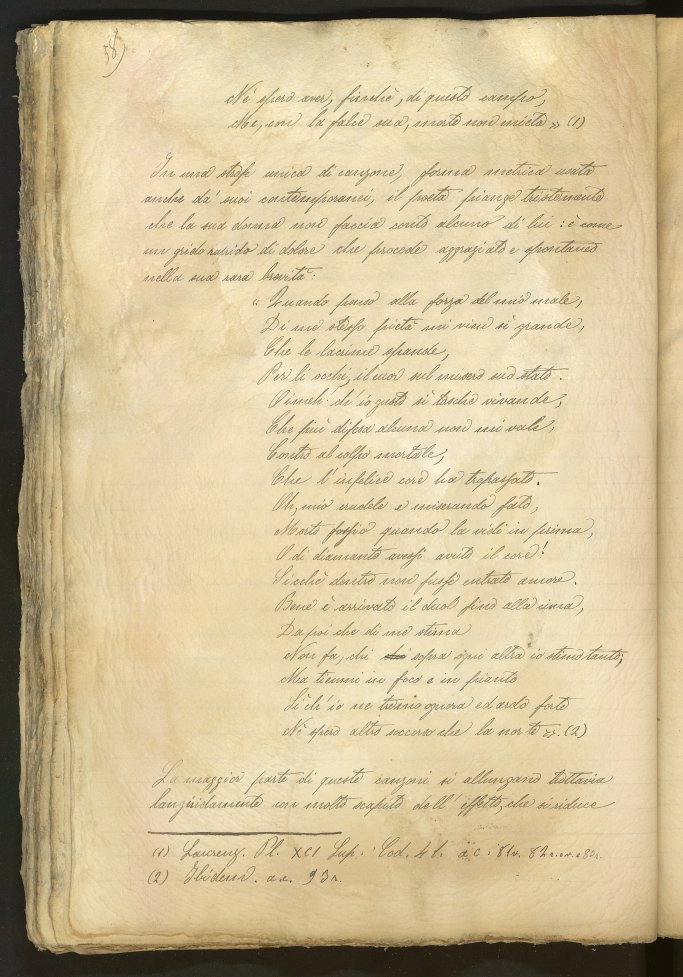 58)
Né spero aver, finchè, di questo campo,
Me, con la falce sua, morte non mieta » (1)
In una strofe unica di canzone, forma metrica usata
anche da' suoi contemporanei, il poeta piange tristemente
che la sua donna non faccia conto alcuno di lui: è come
un grido di dolore che procede aggraziato e spontaneo
nella sua rara brevità:
" Quando penso alla forza del mio male,
Di me stesso pietà mi vien sì grande,
Che le lacrime spande,
Per li occhi, il cuor sul misero suo stato.
Oimeh! ch'io gusto sì tosche vivande,
Che più difesa alcuna non mi vale,
Contro al colpo mortale,
Che l'infelice core ha trapassato.
Oh, mio crudele e miserando fato,
Morto foss'io quando la vidi in prima,
O di diamante avessi avuto il core!
Sicchè dentro non fusse entrato amore.
Bene è arrivato il duol fino alla cima,
Da poi che di me stima
Non fa, chi sopra ogni altra io stimo tanto;
Ma tienmi in foco e in pianto
Sì ch'io ne tremo ognora ed ardo forte
Né spero altro soccorso che la morte ». (2)
La maggior parte di queste canzoni si allungano tuttavia
languidamente con molto scapito dell'effetto, che si riduce
(1) Laurenz. Pl. XCI Sup. Cod. 41. a c: 81v. 82
(2) Ibidem. a c. 93r.